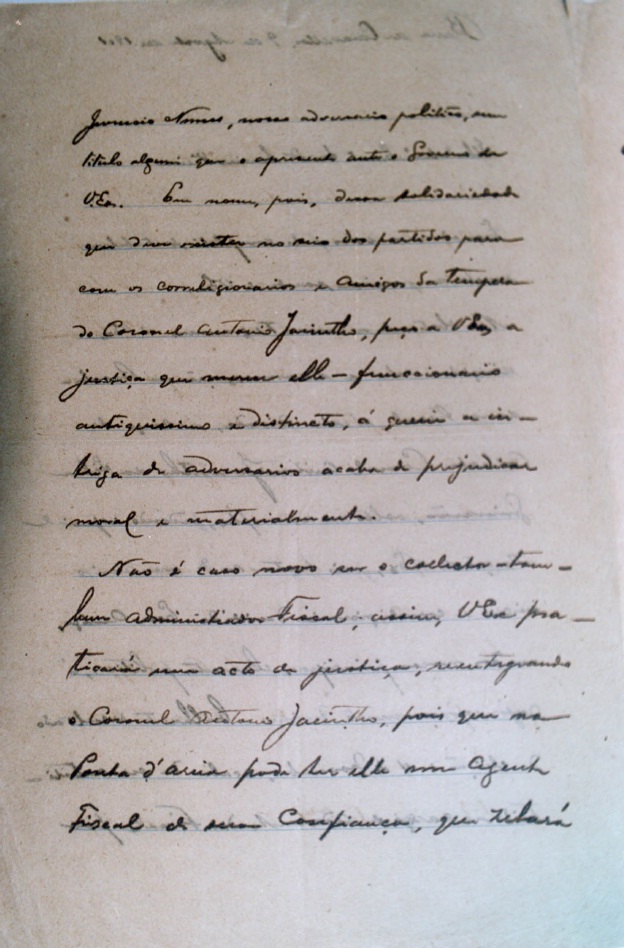 Nunes, nosso adversario politico, sem
titulo algum que o apresente ante o Governo de
V.Exa. Em nome, pois, dessa solidariedade
que deve existir no seio dos partidos para
com os correligionarios e amigos da tempera
do Coronel Antonio Jacintho, peço a V.Exa a
justiça que merece elle - funccionario
antiquissimo e distincto, á quem a in-
triga de adversarios acaba de prejudicar
moral e materialmente.
Não é caso novo ser o collector tam-
bem Administrador Fiscal, assim, V.Exa pra-
ticará um acto de justiça, reintegrando
o Coronel Antonio Jacintho, pois que na
Ponta d'areia pode ter elle um Agente
Fiscal de sua Confiança, que zelará